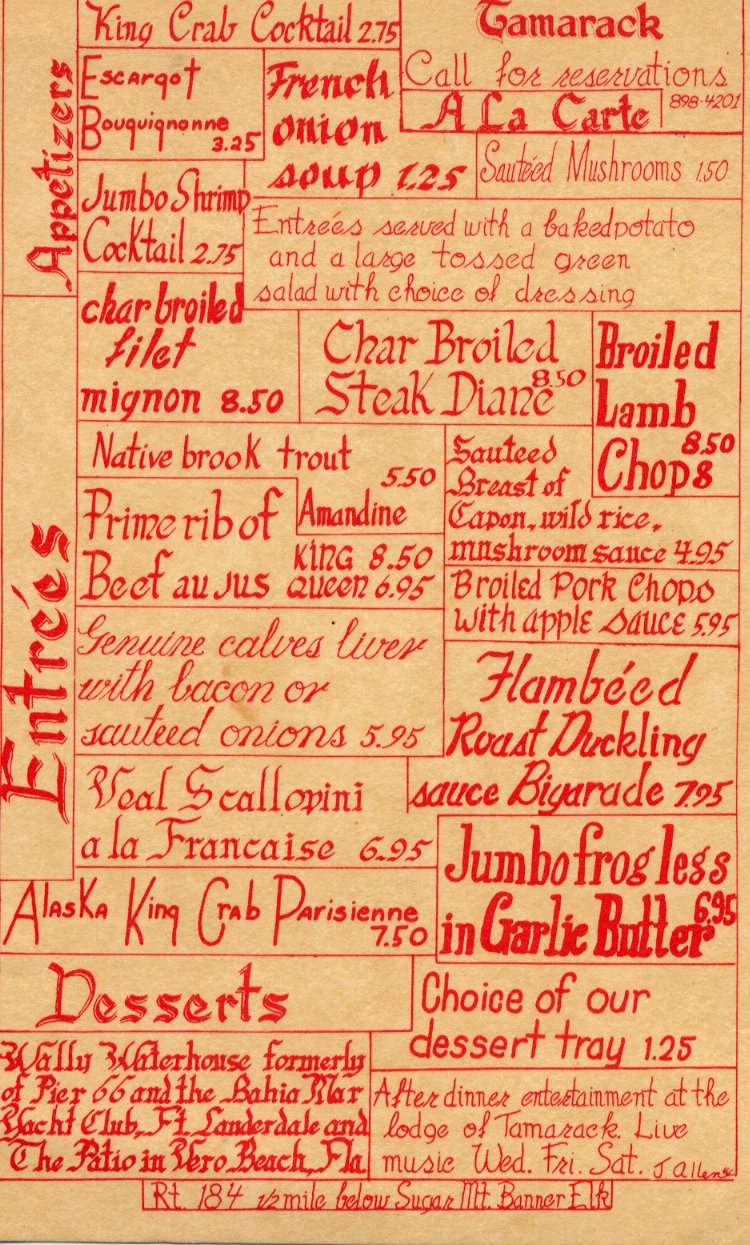 King Crab Cocktail 2.75
Tamarack
Call for reservations
898-4201
A La Carte
Appetizers
Escargot
Bouquignonne
3.25
French
onion
soup 1.25
Sautéed Mushrooms 1.50
Jumbo Shrimp
Cocktail 2.75
Entrées served with a baked potato
and a large tossed green
salad with choice of dressing
Entrées
char broiled
filet
mignon 8.50
Char Broiled
Steak Diane 8.50
Broiled
Lamb
Chops 8.50
Native brook trout
5.50
Amandine
Sauteed
Breast of
Capon, wild rice,
mushroom sauce 4.95
Prime rib of
Beef au jus
King 8.50
Queen 6.95
Broiled Pork Chops
with apple sauce 5.95
Genuine calves liver
with bacon or
sauteed onions 5.95
Flambéed
Roast Duckling
sauce Bigarade 7.95
Veal Scallopini
a la Francaise 6.95
Jumbo frog legs
in Garlic Butter 6.95
Alaska King Crab Parisienne
7.50
Desserts
Choice of our
dessert tray 1.25
Wally Waterhouse formerly
of Pier 66 and the Bahia Mar
Yacht Club, Ft. Lauderdale and
The Patio in Vero Beach, Fla.
After dinner entertainment at the
lodge of Tamarack. Live
music Wed. Fri. Sat.
Rt. 184 1/2 mile below Sugar Mt. Banner Elk